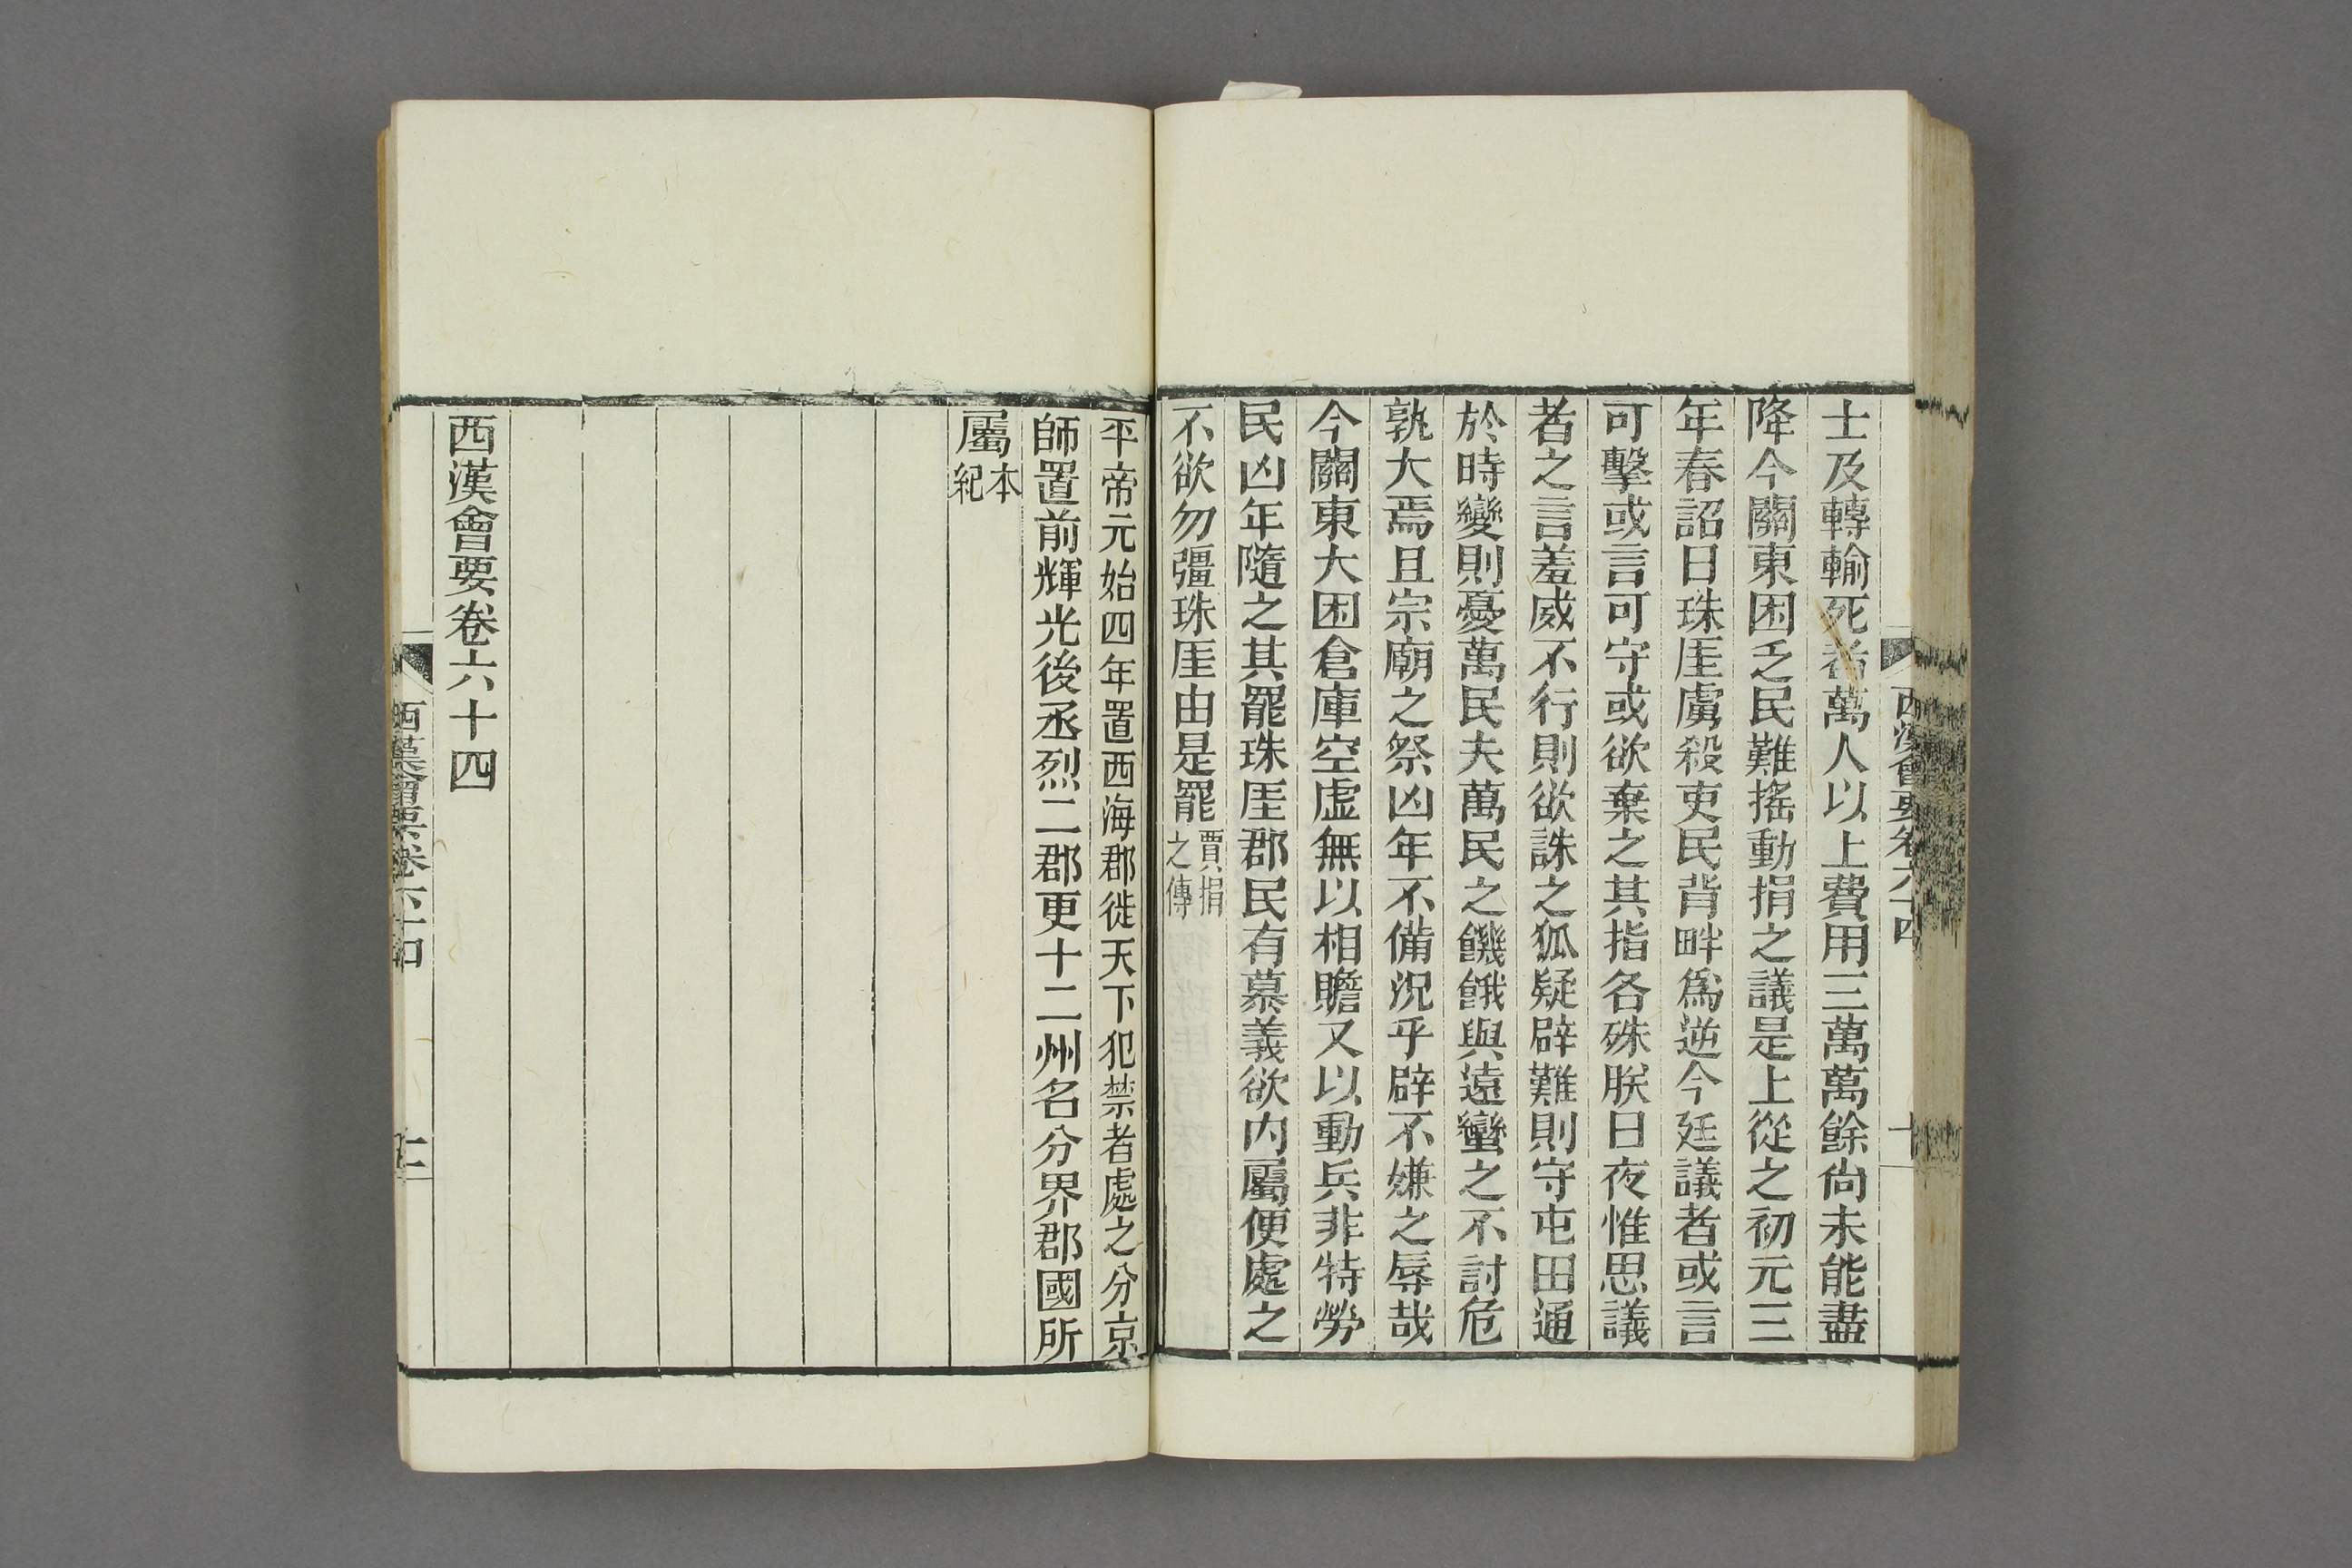 士及轉輸死者萬人以上費用三萬萬餘尙未能盡
降今關東困乏民難搖動捐之議是上從之初元三
年春詔曰珠厓虜殺吏民背畔爲逆今廷議者或言
可擊或言可守或欲棄之其指各殊朕日夜惟思議
者之言羞威不行則欲誅之狐疑辟難則守屯田通
於時變則憂萬民夫萬民之饑餓與遠蠻之不討危
孰大焉且宗廟之祭凶年不備況乎辟不嫌之辱哉
今關東大困倉庫空虛無以相贍又以動兵非特勞
民凶年隨之其罷珠厓郡民有慕義欲内屬便處之
不欲勿彊珠厓由是罷賈捐之傳
平帝元始四年置西海郡徙天下犯禁者處之分京
師置前輝光後丞烈二郡更十二州名分界郡國所
屬本紀
西漢會要卷六十四
西漢會要卷六十四